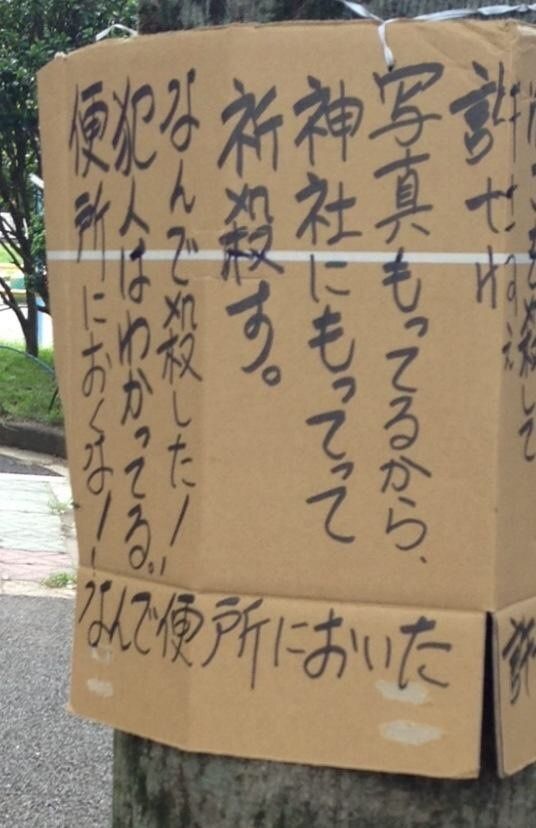 を殺して
許せ
写真もってるから、
神社にもってって
祈殺す。
なんで殺した!!
犯人はわかってる。
便所におくな!!
なんで便所においた
許